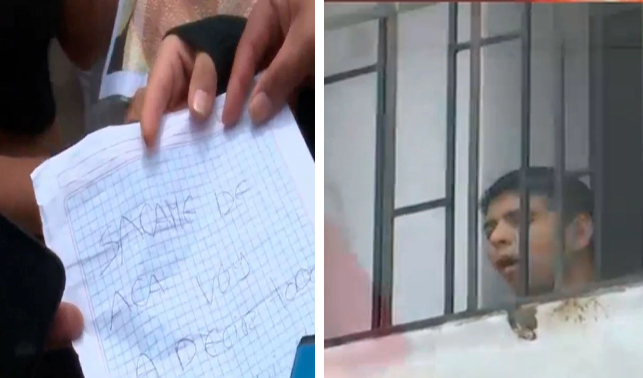 SACAME DE
ACA VOY
A DECIR TODO